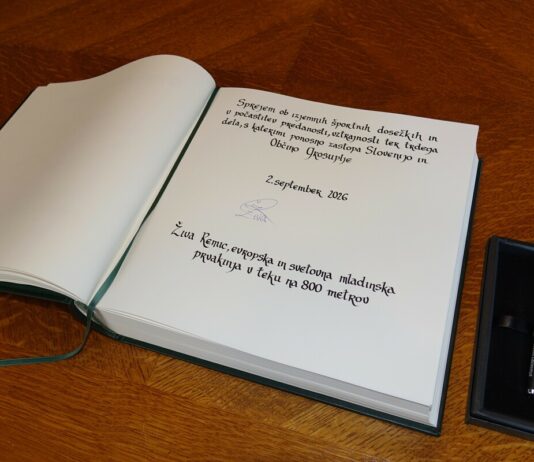 Sprejem ob izjemnih športnih dosežkih in
v počastitev predanosti, vztrajnosti ter trdega
dela, s katerimi ponosno zastopa Slovenijo in
Občino Grosuplje
2. september 2026
Živa
Živa Remic, evropska in svetovna mladinska
prvakinja v teku na 800 metrov